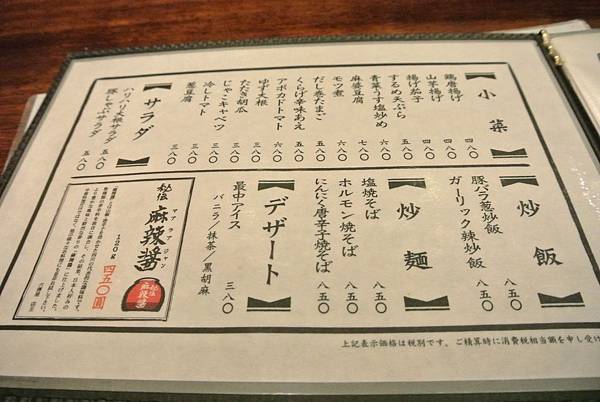 小菜
鶏唐揚げ 四八〇
山芋揚げ 四八〇
揚げ茄子 四八〇
するめ天ぷら
青菜うす塩炒め
麻婆豆腐 七八〇
モツ煮 六八〇
だし巻たまご 五八〇
くらげ辛味あえ 五八〇
アボカドトマト 六八〇
ゆず大根 三八〇
たたき胡瓜 三八〇
じゃこキャベツ 三八〇
冷しトマト 三八〇
葱豆腐 三八〇
サラダ
ハリハリ大根サラダ 五八〇
豚しゃぶサラダ 五八〇
炒飯
豚バラ葱炒飯 八五〇
ガーリック辣炒飯 八五〇
炒麺
塩焼そば 八五〇
ホルモン焼そば 八五〇
にんにく唐辛子焼そば 八五〇
デザート
最中アイス
バニラ/抹茶/黒胡麻 三八〇
秘伝 麻辣醤
マアラアジャン
120g 四五〇圓
秘伝
麻辣醤
上記表示価格は税別です。ご精算時に消費税相当額を申し受け